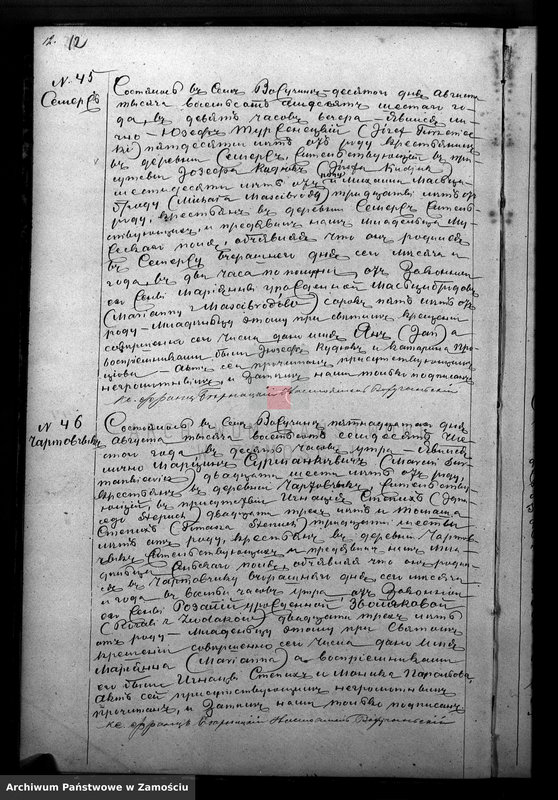 12. 12
N. 45
Семерхъ
Состоялось въ Селѣ Вожучинѣ десятого дня Августа
тысяча восемьсотъ семдесятъ шестаго го-
да, въ девять часовъ вечера – Явился ли-
чно – Юзефъ (Józef
пятдесяти пять отъ роду крестьянинъ
въ деревни Семерхъ, жительствующій въ при-
сутствіи Юзефа Кудюка (Józefa Kudjuk)
шестидесяти пять отъ роду и Михаила
(Michała Macibrodę) тридцати пять отъ
роду, крестьянъ въ деревни Семерхъ житель-
ствующихъ, и предъявилъ намъ младенца му-
жескаго пола, объявляя что онъ родился
въ Семерху вчерашняго дня сего мѣсяца и
года, въ два часа по полудни, отъ законной
его жены Маріанны урожденной
(Marianny z Mascibrodów) сорокъ пять отъ
роду – младенцу этому при святомъ крещеніи
совершенно сего числа дано имя Янъ (Jan) а
воспріемниками были Юзефъ Кудюкъ и Катарина
– актъ сей прочитанъ присутствующимъ
неграмотнымъ и затѣмъ нами только подписанъ
Кс. Францъ Настоятель Вожучинскій
N 46
Чартовчикъ
Состоялось въ Селѣ Вожучинѣ пятнадцатаго дня
Августа тысяча восемьсотъ семидесятъ ше-
стого года въ десять часовъ утра – Явился
лично Марцинъ (Marcin
двадцати шести лѣтъ отъ роду,
крестьянъ въ деревни Чартовчикъ жительству-
ющій, въ присутствіи Игнація Степиха (Igna-
cego Stepich) двадцати трехъ лѣтъ и Томаша
Степиха (Tomasza Stepich) тридцати шести
лѣтъ отъ роду, крестьянъ въ деревни Чартов-
чикъ жительствующихъ и предъявилъ намъ мла-
денца женскаго пола, объявляя что онъ родил-
ся въ Чартовчику вчерашняго дня сего мѣсяца
и года, въ восемь часовъ утра, отъ законной
его жены Розаліи урожденной
(Rozalii z двадцати трехъ лѣтъ
отъ роду – младенцу этому при Святомъ
крещеніи совершенно сего числа дано имя
Маріанна (Marianna) а воспріемниками
его были Игнацъ Степихъ и Моника
актъ сей присутствующимъ неграмотнымъ
прочитанъ, и затѣмъ нами только подписанъ
Кс. Францъ Настоятель Вожучинскій
Archiwum Państwowe w Zamościu